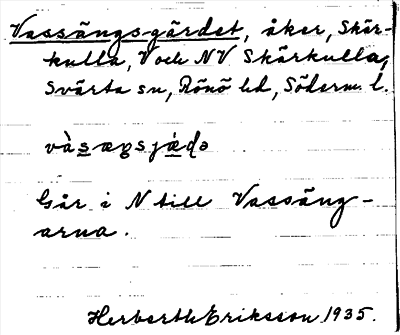 Vassängsgärdet, åker, Skär-
kulla, V och NV Skärkulla,
Svärta sn, Rönö hd, Söderm. l.
vàsæŋsjǽḍə
Går i N till Vassäng-
arna.
Herberth Eriksson 1935.